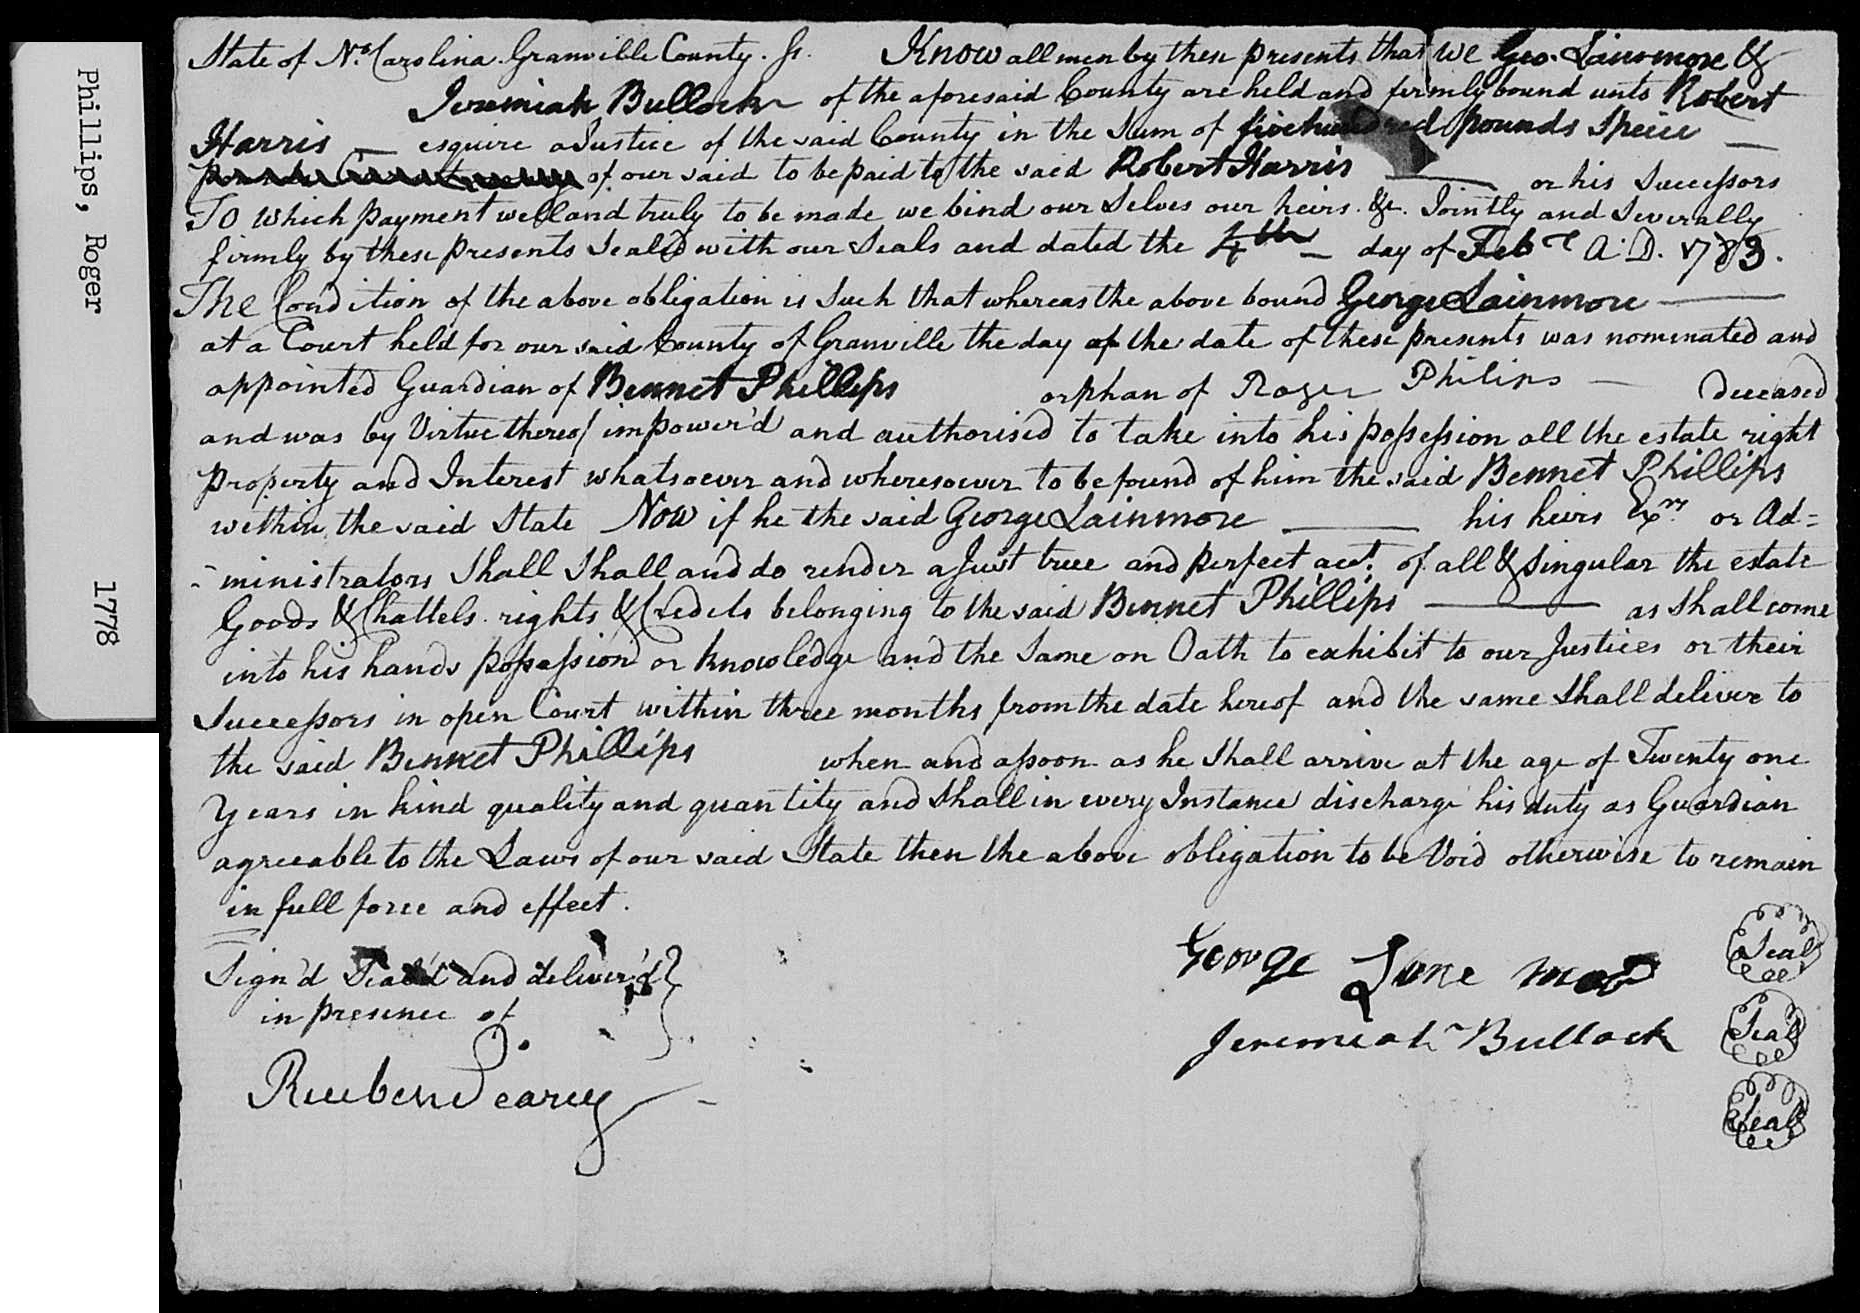 Phillips, Roger 1778
State of No. Carolina. Granville County. Ss. Know all men by these presents that we Geo. Lainmore &
Jeremiah Bullock of the aforesaid County are held and firmly bound unto Robert
Harris — esquire a Justice of the said County in the Sum of five hundred pounds Specie —
of our said to be paid to the said Robert Harris — or his Successors
To which payment well and truly to be made we bind our Selves our heirs. &c. Jointly and Severally
firmly by these presents Sealed with our Seals and dated the 4th — day of Feby A.D. 1783.
The Condition of the above obligation is Such that whereas the above bound George Lainmore —
at a Court held for our said County of Granville the day of the date of these presents was nominated and
appointed Guardian of Bennet Phillips orphan of Roger Philips — Deceased
and was by Virtue thereof impower'd and authorised to take into his possession all the estate right
property and Interest whatsoever and wheresoever to be found of him the said Bennet Phillips
within the said State Now if he the said George Lainmore — his heirs Exrs. or Ad=
=ministrators Shall Shall and do render a Just true and perfect acct. of all & Singular the estate
Goods & Chattels rights & Credets belonging to the said Bennet Phillips — as Shall come
into his hands possession or knowledge and the Same on Oath to exhibit to our Justices or their
Successors in open Court within three months from the date hereof and the same Shall deliver to
the said Bennet Phillips when and assoon as he Shall arrive at the age of Twenty one
Years in kind quality and quantity and Shall in every Instance discharge his duty as Guardian
agreeable to the Laws of our said State then the above obligation to be Void otherwise to remain
in full force and effect.
Sign'd Seal'd and deliver'd
in presence of
Reuben Searcy
George Lane mor Seal
Jeremiah Bullock Seal
Seal